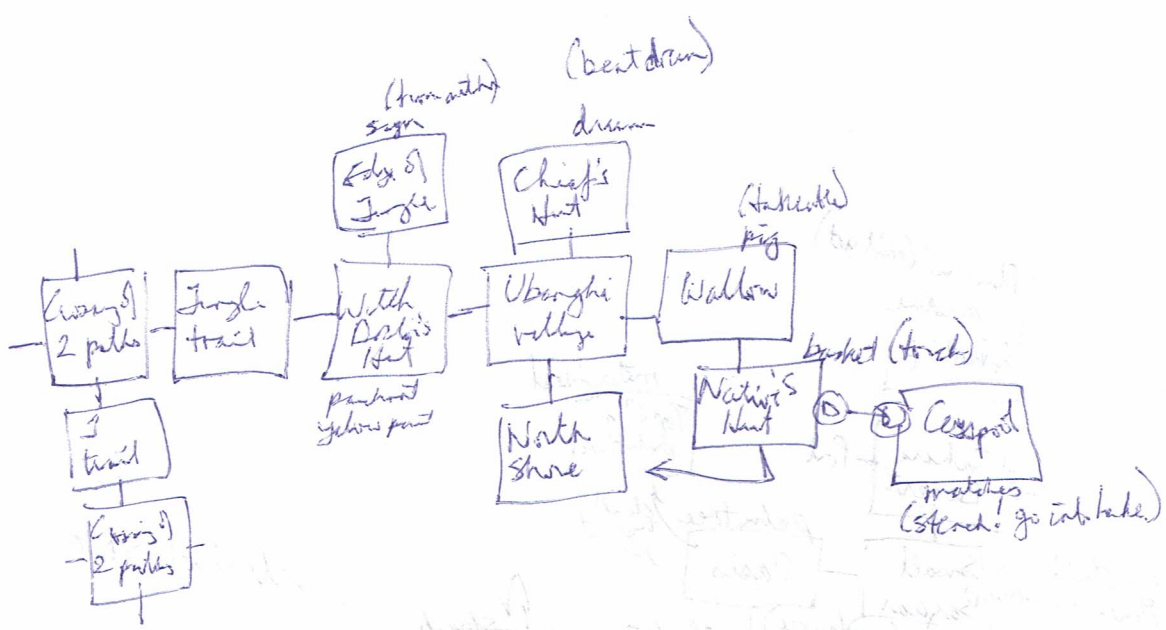 (beat drum)
sign
drum
Edge of
Jungle
Chief's
Hut
pig
Crossing of
2 paths
Jungle
trail
Witch
Doctor's
Hut
Ubanghi
village
Wallow
basket (torch)
yellow paint
J
trail
North
Shore
Native's
Hut
D
D
Cesspool
matches
(stench! go into lake)
Crossing of
2 paths